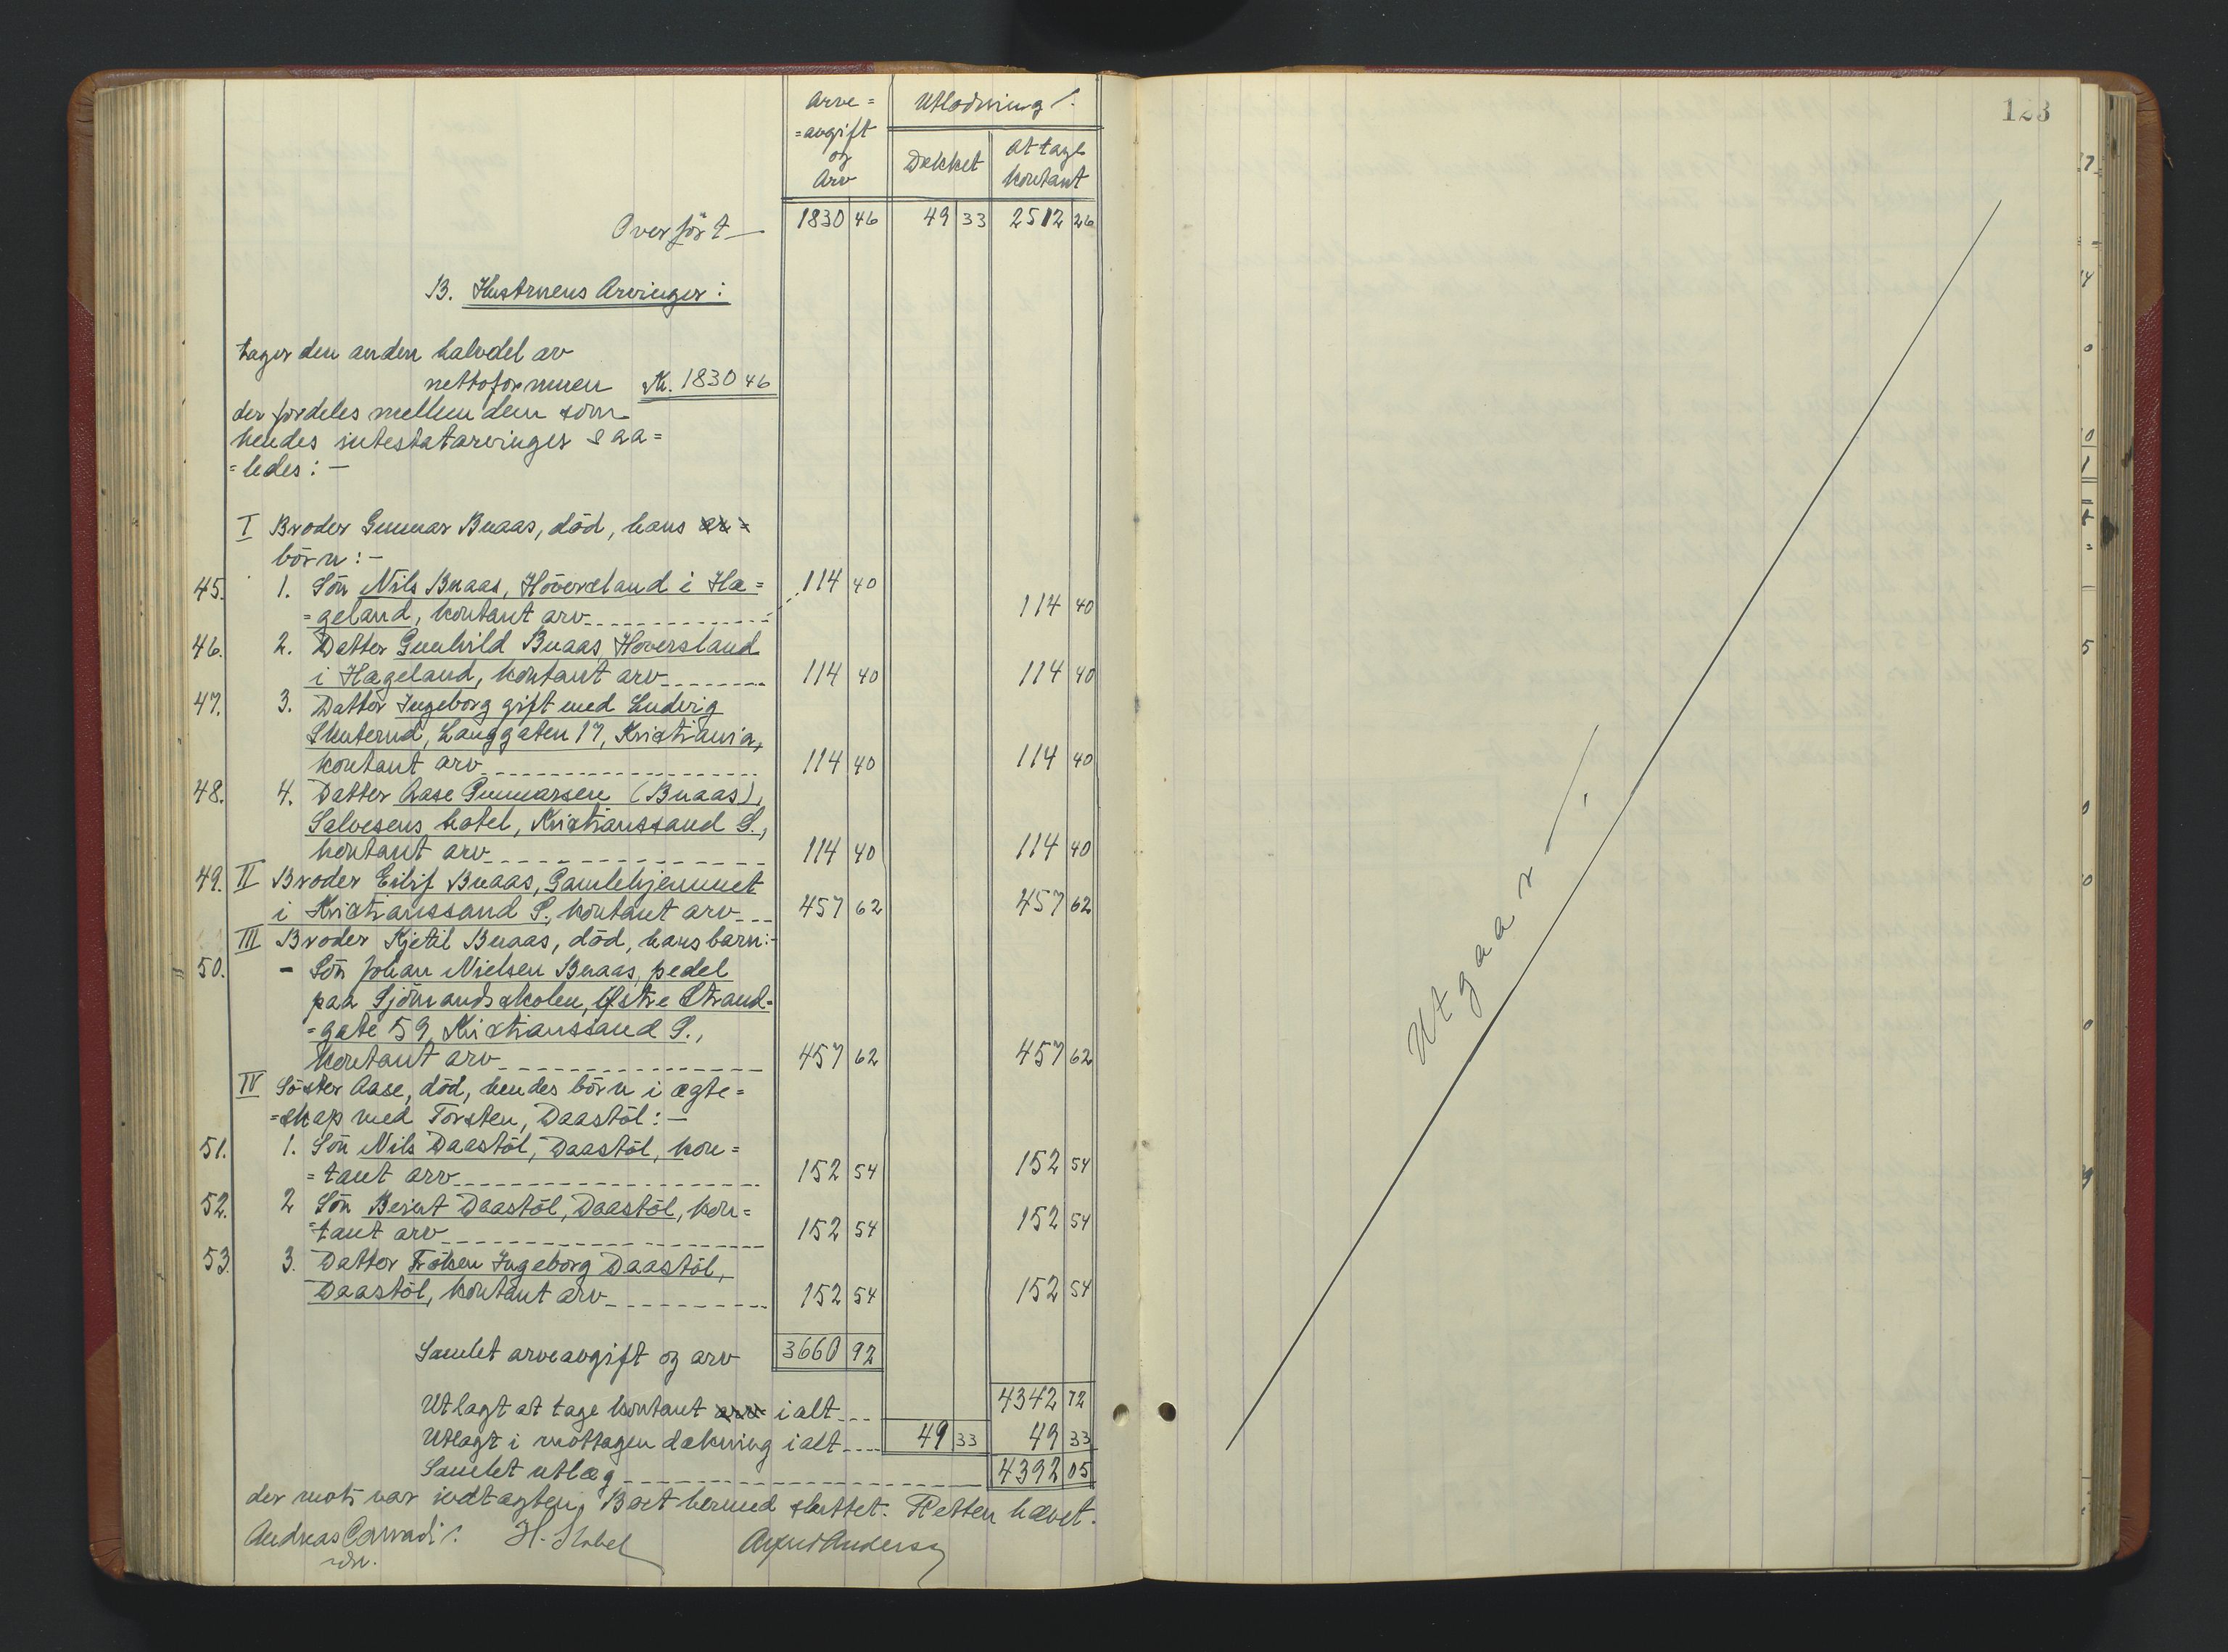 Arve=
=avgift
og
Arv
Utlodning ⁒
Dækket
At tage
kontant
Overført — 1830 46 49 33 2512 26
B. Hustruens Arvinger:
tager den anden halvdel av
nettoformuen Kr. 1830 46
der fordeles mellem dem som
hendes intestatarvinger saa=
=ledes: —
I Broder Gunnar Buaas, död, hans
börn: —
45. 1. Sön Nils Buaas, Höversland i Hæ= 114 40
=geland, kontant arv 114 40
46. 2. Datter Gunhild Buaas Höversland
i Hægeland, kontant arv 114 40 114 40
47. 3. Datter Ingeborg gift med Ludvig
Skuterud, Langgaten 17, Kristiania,
kontant arv 114 40 114 40
48. 4. Datter Aase Gunnarsen (Buaas),
Salvesens hotel, Kristianssand S.,
kontant arv 114 40 114 40
49. II Broder Eilif Buaas, Gamlehjemmet
i Kristianssand S., kontant arv 457 62 457 62
III Broder Kjetil Buaas, död, hans barn: -
50. - Sön Johan Nielsen Buaas, pedel
paa Sjömandsskolen, Østre Strand=
=gate 59, Kristianssand S.,
kontant arv 457 62 457 62
IV Söster Aase, död, hendes börn i ægte=
=skap med Torsten, Daastöl: —
51. 1. Sön Nils Daastöl, Daastöl, kon=
=tant arv 152 54 152 54
52. 2 Sön Berent Daastöl, Daastöl, kon=
=tant arv 152 54 152 54
53. 3. Datter Fröken Ingeborg Daastöl,
Daastöl, kontant arv 152 54 152 54
Samlet arveavgift og arv 3660 92
Utlagt at tage kontant ialt 4342 72
Utlagt i mottagen dækning ialt 49 33 49 33
Samlet utlæg 4392 05
der mots var indtægten. Boet hermed sluttet. Retten hævet.
Andreas Corradi ⁒ H. Stabel
123
Utgaar ⁒